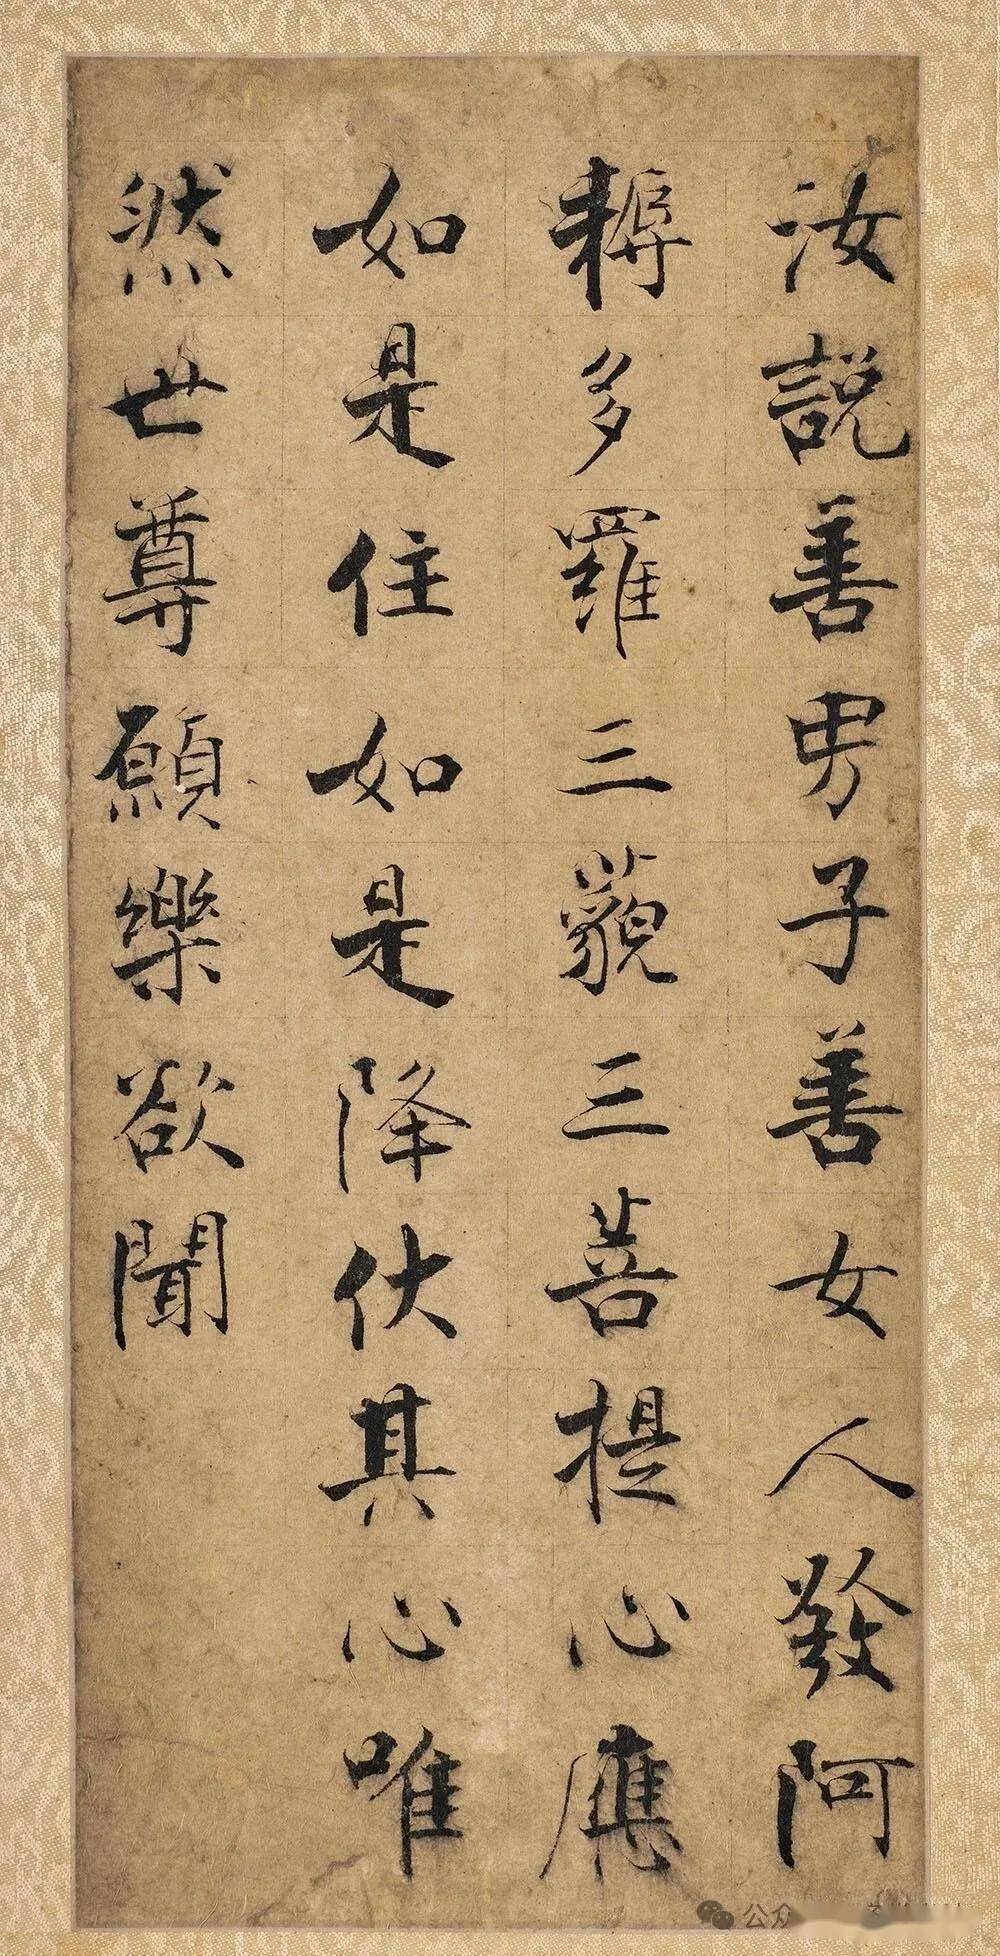 汝說善男子善女人發阿
耨多羅三藐三菩提心應
如是住如是降伏其心唯
然世尊願樂欲聞
公众